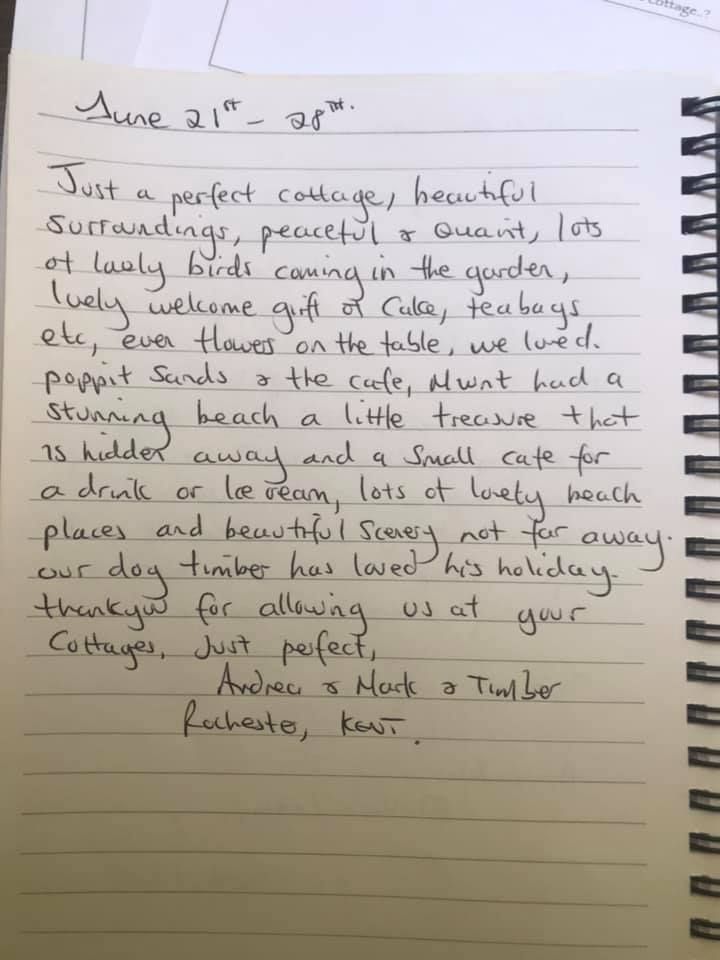 cottage..?
June 21st - 28TH.
Just a perfect cottage, beautiful
surroundings, peaceful & Quaint, lots
of lovely birds coming in the garden,
luely welcome gift of Cake, teabags
etc, even flowers on the table, we loved.
poppit Sands & the cafe, Mwnt had a
stunning beach a little treasure that
is hidden away and a small cafe for
a drink or Ice ream, lots of lovely beach
places and beautiful Scenery not far away.
our dog timber has loved his holiday.
thankyou for allowing us at your
Cottages, Just perfect,
Andrea & Mark & TimBer
Rochester, KENT.